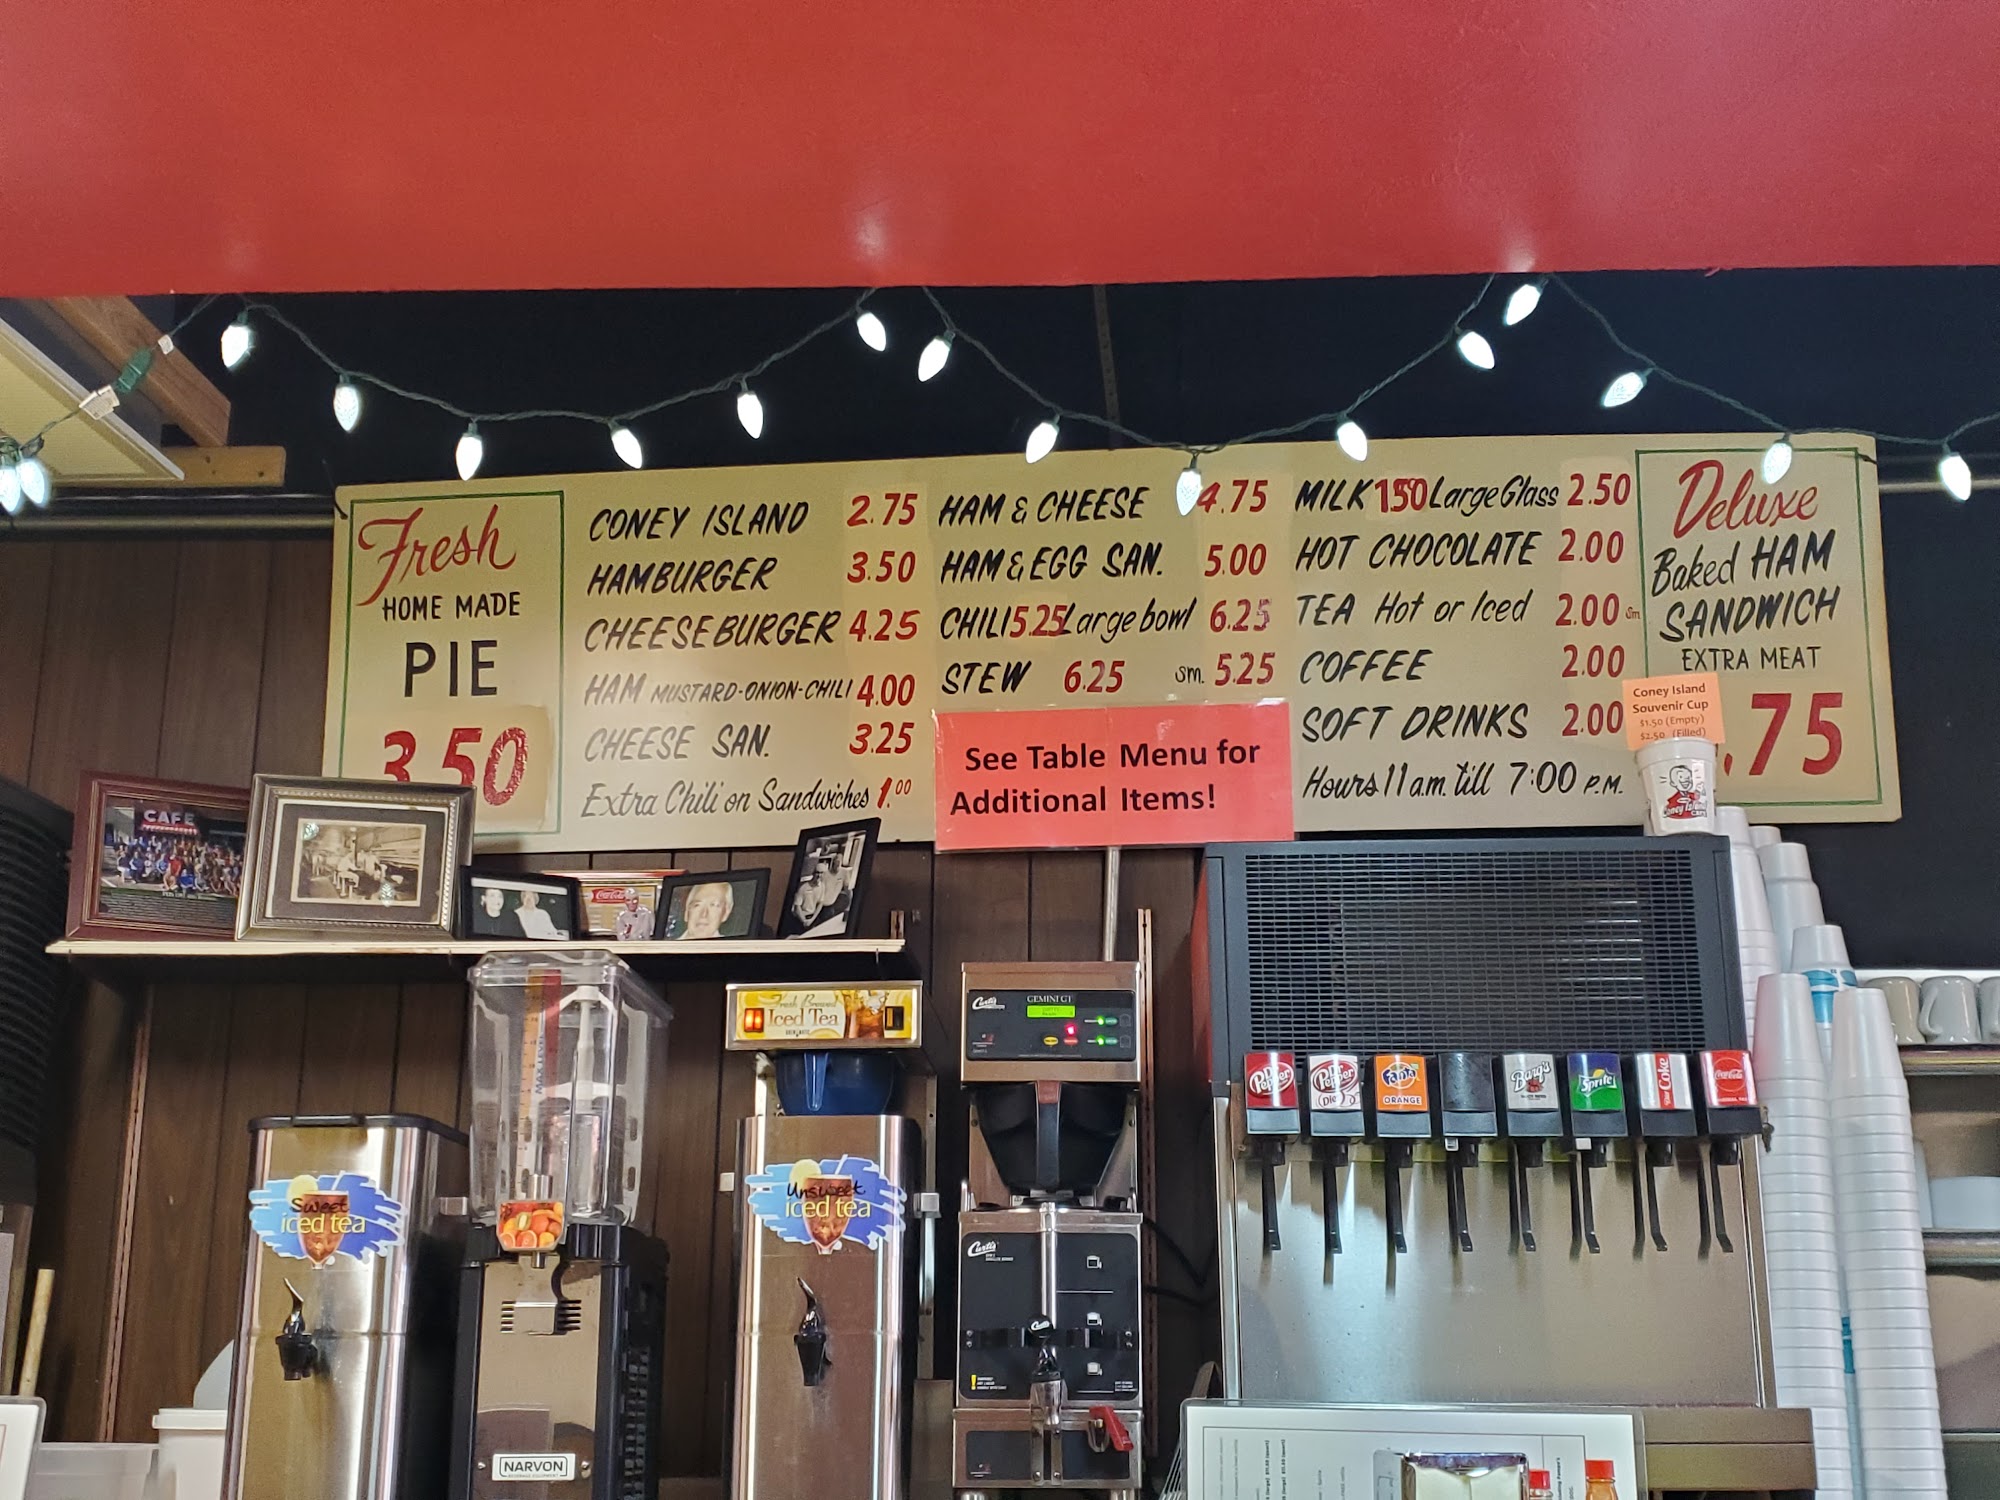 Fresh
HOME MADE
PIE
3.50
CONEY ISLAND 2.75
HAMBURGER 3.50
CHEESEBURGER 4.25
HAM MUSTARD-ONION-CHILI 4.00
CHEESE SAN. 3.25
Extra Chili on Sandwiches 1.00
HAM & CHEESE 4.75
HAM & EGG SAN. 5.00
CHILI 5.25 Large bowl 6.25
STEW 6.25 sm. 5.25
See Table Menu for
Additional Items!
MILK 1.50 Large Glass 2.50
HOT CHOCOLATE 2.00
TEA Hot or Iced 2.00 sm
COFFEE 2.00
SOFT DRINKS 2.00
Hours 11 a.m. till 7:00 P.M.
Deluxe
Baked HAM
SANDWICH
EXTRA MEAT
.75
Coney Island
Souvenir Cup
$1.50 (Empty)
$2.50 (Filled)
Coney Island
CAFE
Coca-Cola
MAX LEVEL
Fresh Brewed
Iced Tea
Curtis
GEMINI GT
Sweet
iced tea
Unsweet
iced tea
Curtis
Curtis
NARVON
Dr Pepper
Dr Pepper
Diet
Fanta
ORANGE
Barq's
Sprite
Diet Coke
Coca-Cola